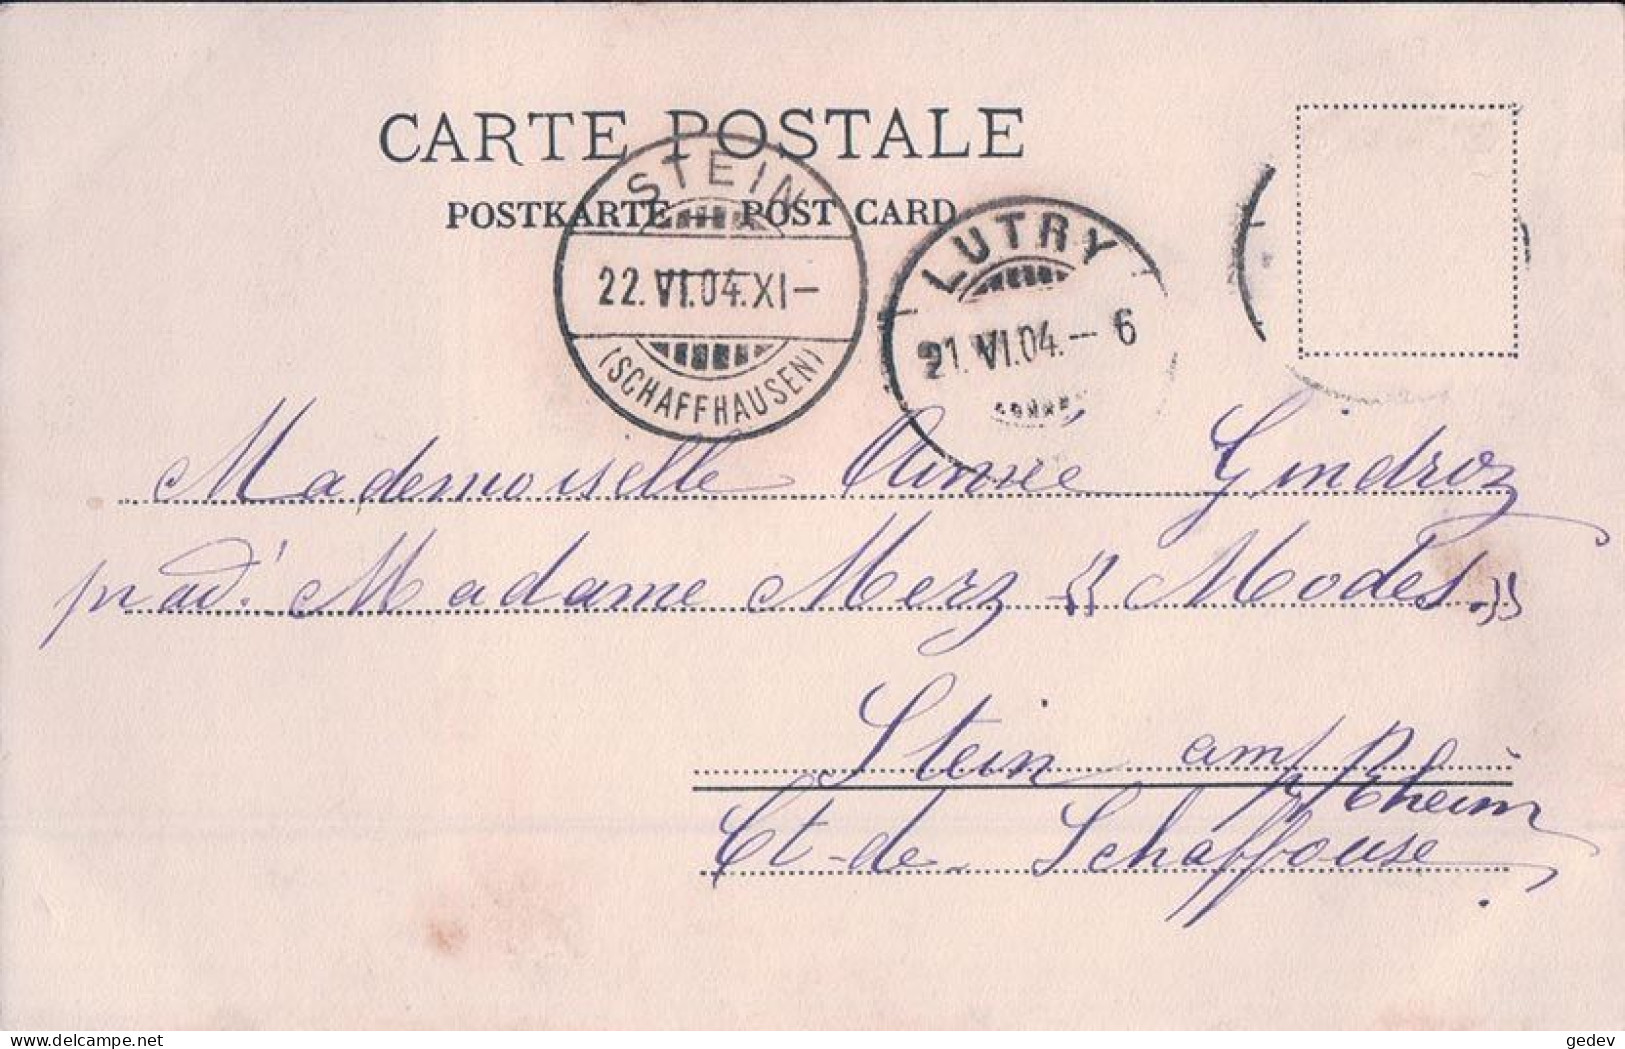 CARTE POSTALE
POSTKARTE — POST CARD
STEIN
22.VI.04.XI—
(SCHAFFHAUSEN)
LUTRY
21.VI.04.— 6
Mademoiselle Aimée Gindroz
prad! Madame Merz "Modes."
Stein am/ Rhein
Ct-de-Schaffouse.
delcampe.net
gedev